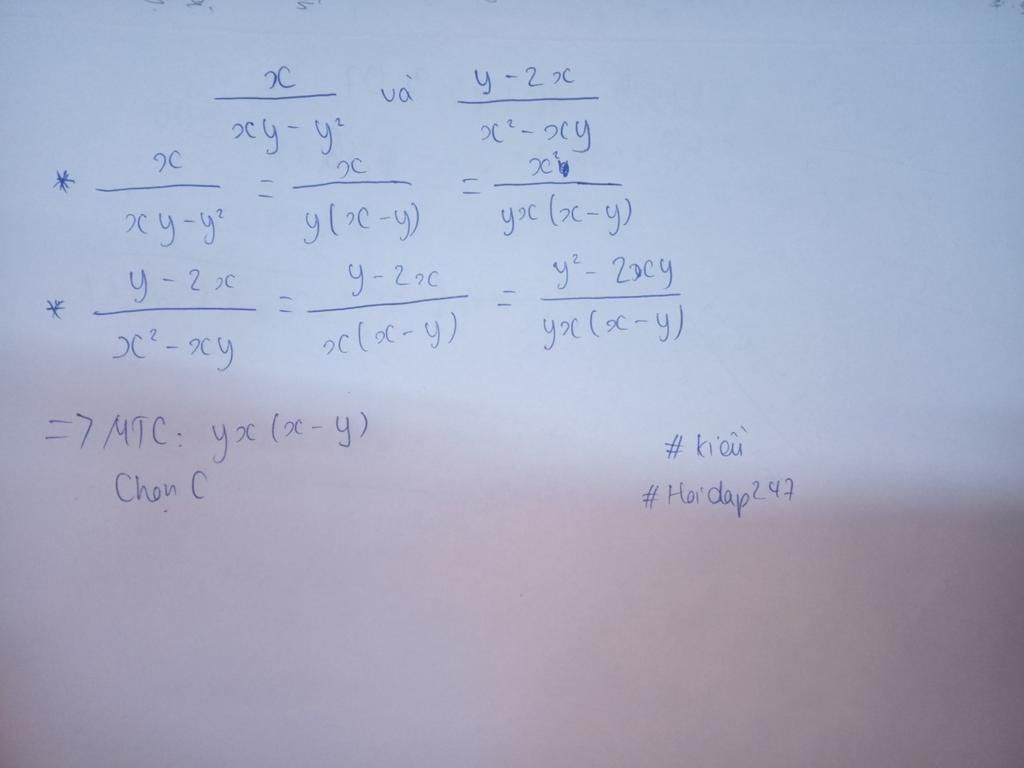 x/(xy - y²) và (y - 2x)/(x² - xy)
* x/(xy - y²) = x/(y(x - y)) = x²/(yx(x - y))
* (y - 2x)/(x² - xy) = (y - 2x)/(x(x - y)) = (y² - 2xy)/(yx(x - y))
=> MTC: yx(x - y)
Chọn C
# kiều
# Hoidap247